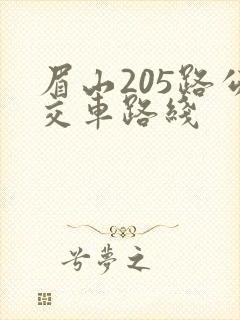 眉山205路公
交車路綫
兮夢之